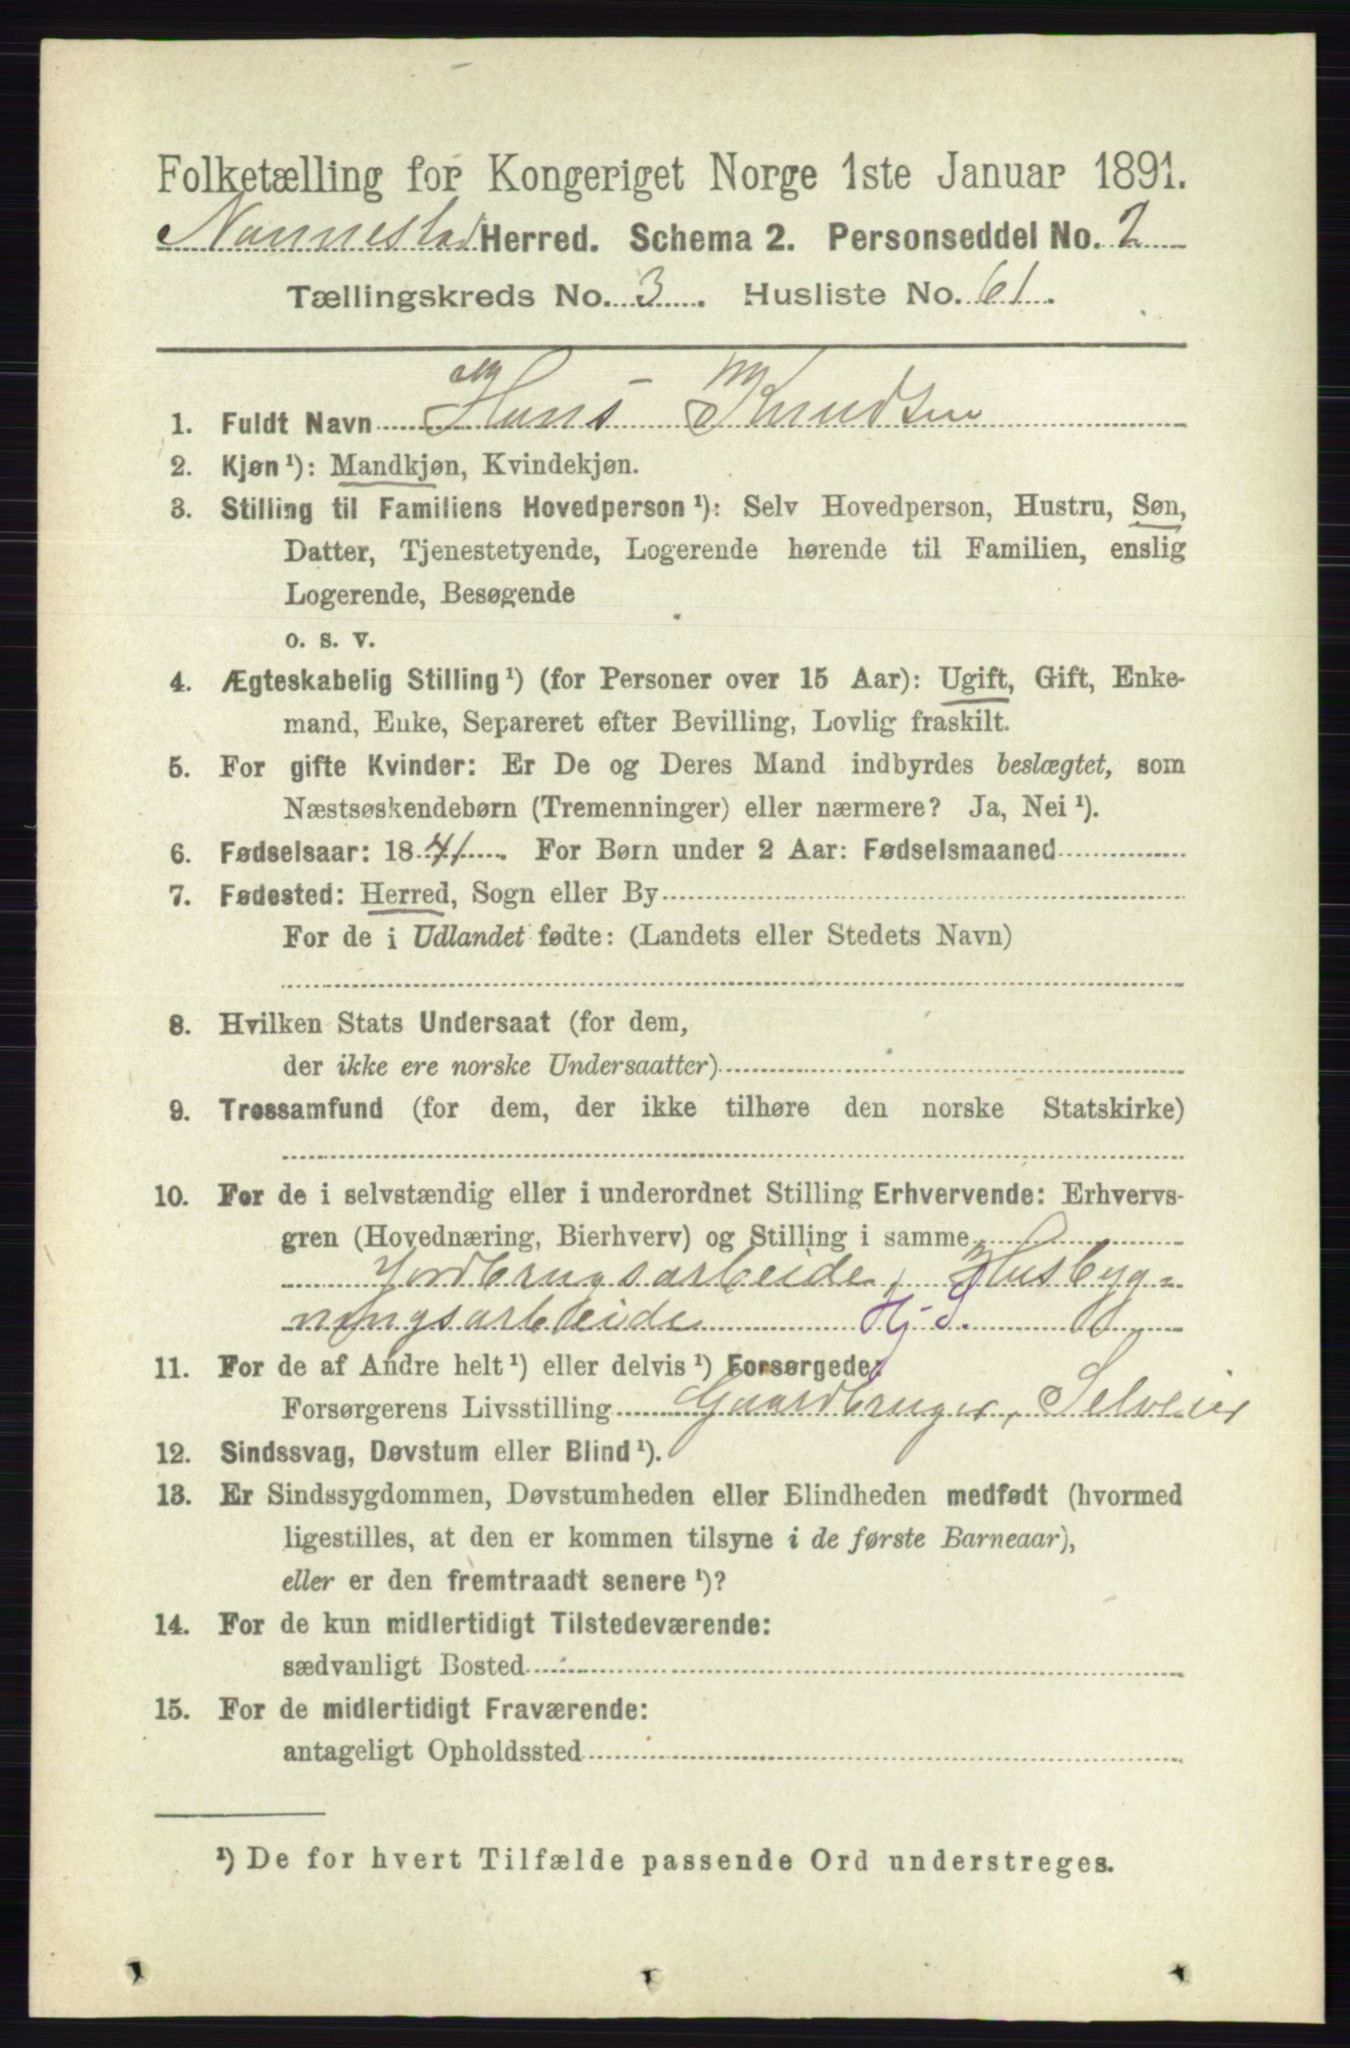 Folketælling for Kongeriget Norge 1ste Januar 1891.
Nannestad Herred. Schema 2. Personseddel No. 2
Tællingskreds No. 3. Husliste No. 61.
1. Fuldt Navn Hans Knudsen
2. Kjøn¹): Mandkjøn, Kvindekjøn.
3. Stilling til Familiens Hovedperson¹): Selv Hovedperson, Hustru, Søn,
Datter, Tjenestetyende, Logerende hørende til Familien, enslig
Logerende, Besøgende
o. s. v.
4. Ægteskabelig Stilling¹) (for Personer over 15 Aar): Ugift, Gift, Enke-
mand, Enke, Separeret efter Bevilling, Lovlig fraskilt.
5. For gifte Kvinder: Er De og Deres Mand indbyrdes beslægtet, som
Næstsøskendebørn (Tremenninger) eller nærmere? Ja, Nei¹).
6. Fødselsaar: 1871. For Børn under 2 Aar: Fødselsmaaned
7. Fødested: Herred, Sogn eller By
For de i Udlandet fødte: (Landets eller Stedets Navn)
8. Hvilken Stats Undersaat (for dem,
der ikke ere norske Undersaatter)
9. Trossamfund (for dem, der ikke tilhøre den norske Statskirke)
10. For de i selvstændig eller i underordnet Stilling Erhvervende: Erhvervs-
gren (Hovednæring, Bierhverv) og Stilling i samme
Jordbrugsarbeide, Husbyg-
ningsarbeide Hj. S.
11. For de af Andre helt¹) eller delvis¹) Forsørgede:
Forsørgerens Livsstilling Gaardbruger, Selveier
12. Sindssvag, Døvstum eller Blind¹).
13. Er Sindssygdommen, Døvstumheden eller Blindheden medfødt (hvormed
ligestilles, at den er kommen tilsyne i de første Barneaar),
eller er den fremtraadt senere¹)?
14. For de kun midlertidigt Tilstedeværende:
sædvanligt Bosted
15. For de midlertidigt Fraværende:
antageligt Opholdssted
¹) De for hvert Tilfælde passende Ord understreges.